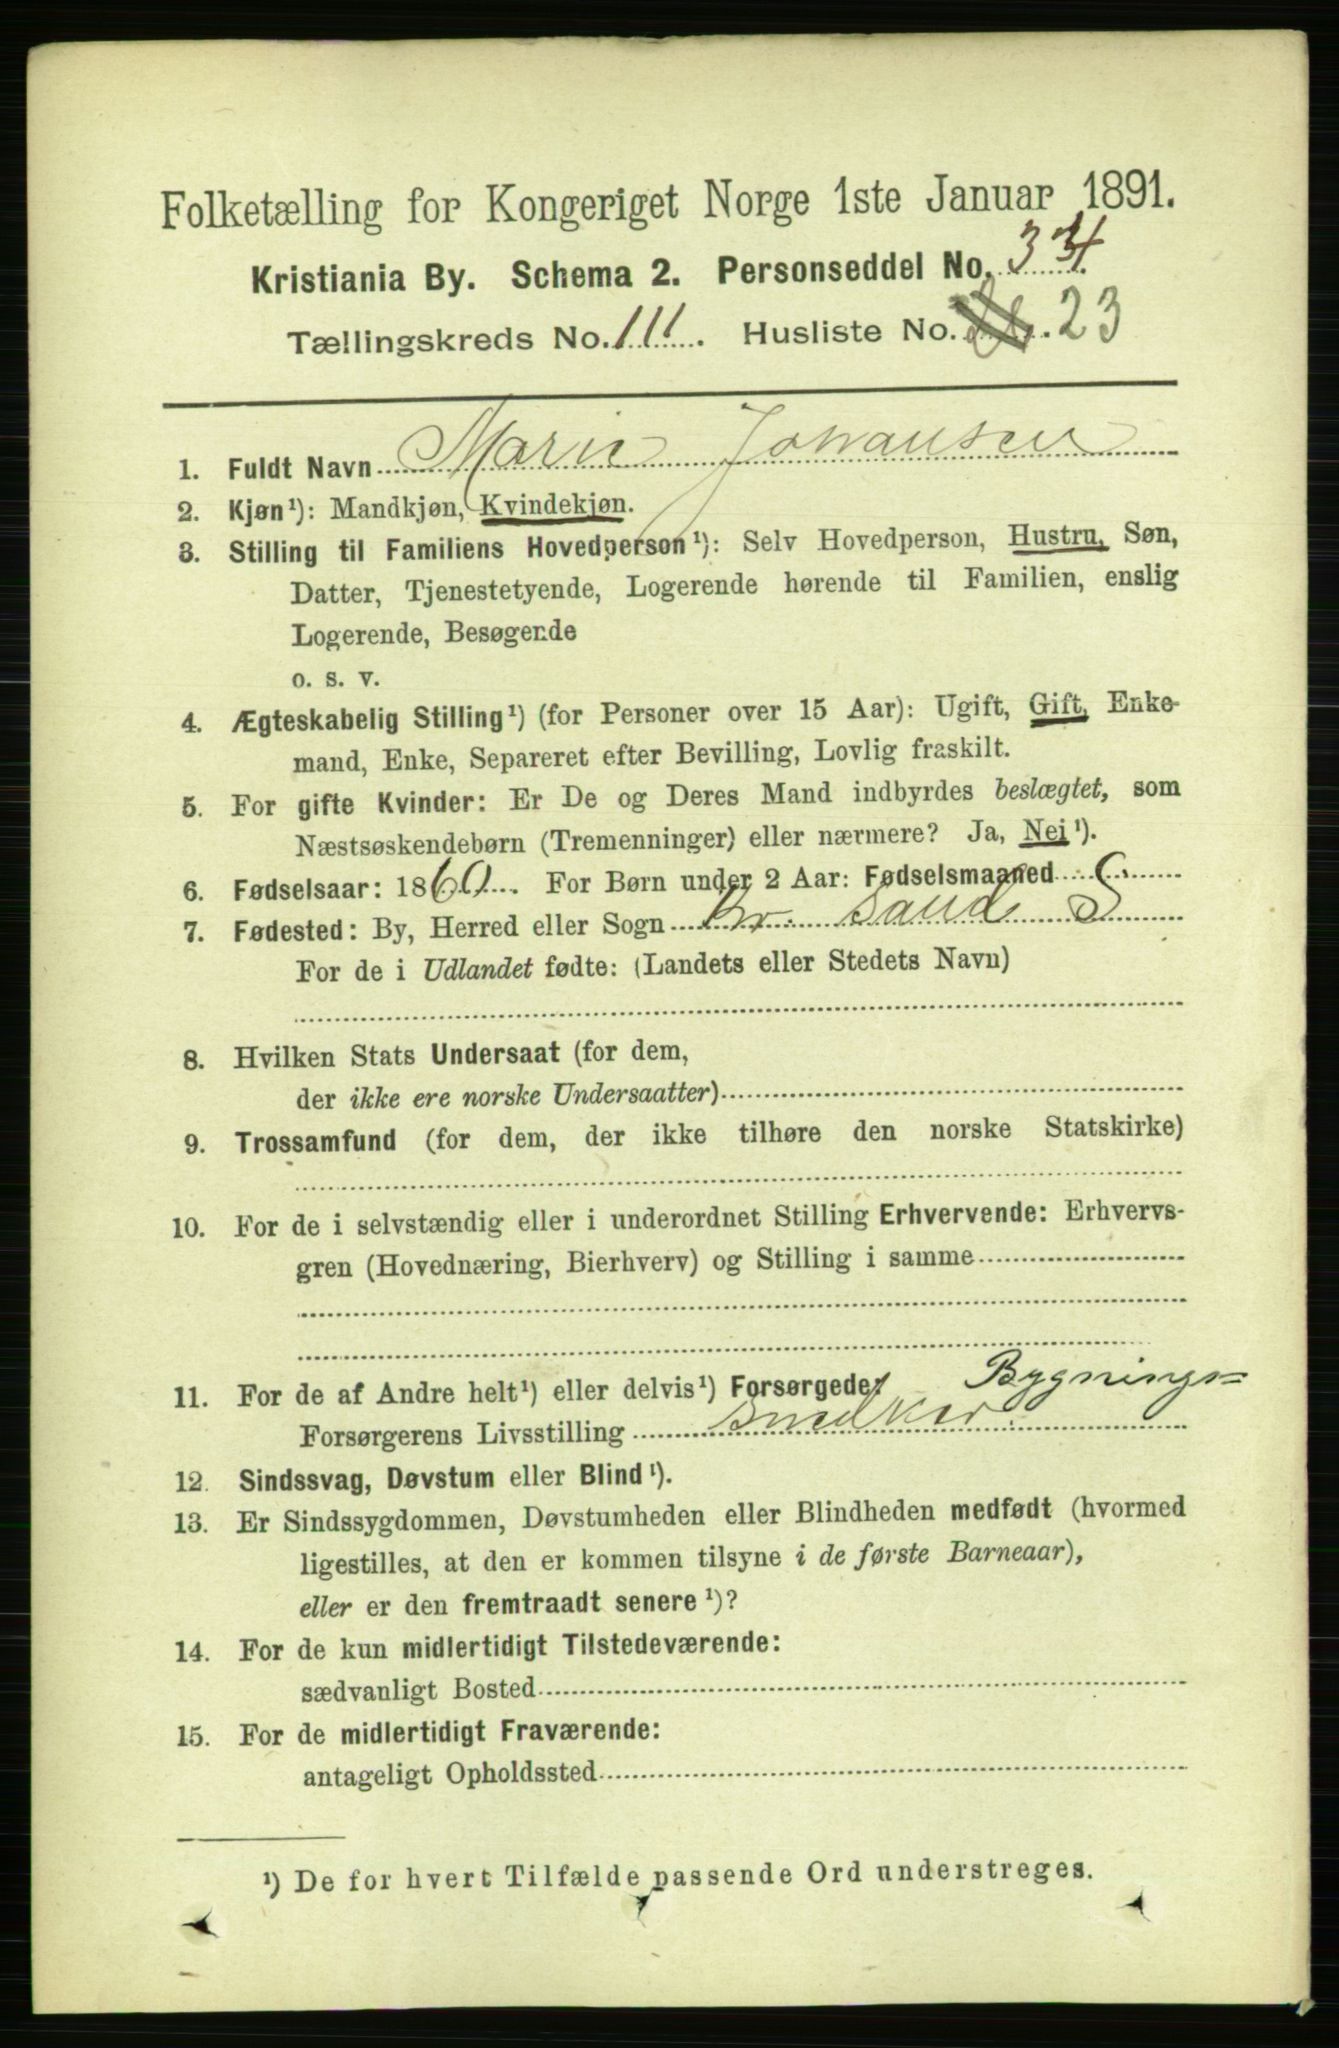 Folketælling for Kongeriget Norge 1ste Januar 1891.
Kristiania By. Schema 2. Personseddel No. 34
Tællingskreds No. 111. Husliste No. 23
1. Fuldt Navn Marie Johansen
2. Kjøn¹): Mandkjøn, Kvindekjøn.
3. Stilling til Familiens Hovedperson¹): Selv Hovedperson, Hustru, Søn,
Datter, Tjenestetyende, Logerende hørende til Familien, enslig
Logerende, Besøgende
o. s. v.
4. Ægteskabelig Stilling¹) (for Personer over 15 Aar): Ugift, Gift, Enke-
mand, Enke, Separeret efter Bevilling, Lovlig fraskilt.
5. For gifte Kvinder: Er De og Deres Mand indbyrdes beslægtet, som
Næstsøskendebørn (Tremenninger) eller nærmere? Ja, Nei¹).
6. Fødselsaar: 1860. For Børn under 2 Aar: Fødselsmaaned
7. Fødested: By, Herred eller Sogn Kr. sand S
For de i Udlandet fødte: (Landets eller Stedets Navn)
8. Hvilken Stats Undersaat (for dem,
der ikke ere norske Undersaatter)
9. Trossamfund (for dem, der ikke tilhøre den norske Statskirke)
10. For de i selvstændig eller i underordnet Stilling Erhvervende: Erhvervs-
gren (Hovednæring, Bierhverv) og Stilling i samme
11. For de af Andre helt¹) eller delvis¹) Forsørgede: Bygnings=
Forsørgerens Livsstilling snedker
12. Sindssvag, Døvstum eller Blind¹).
13. Er Sindssygdommen, Døvstumheden eller Blindheden medfødt (hvormed
ligestilles, at den er kommen tilsyne i de første Barneaar),
eller er den fremtraadt senere¹)?
14. For de kun midlertidigt Tilstedeværende:
sædvanligt Bosted
15. For de midlertidigt Fraværende:
antageligt Opholdssted
¹) De for hvert Tilfælde passende Ord understreges.